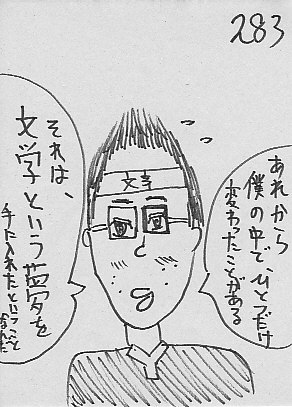 283
あれから
僕の中でひとつだけ
変わったことがある
それは、
文学という夢を
手に入れたということ
なんだ